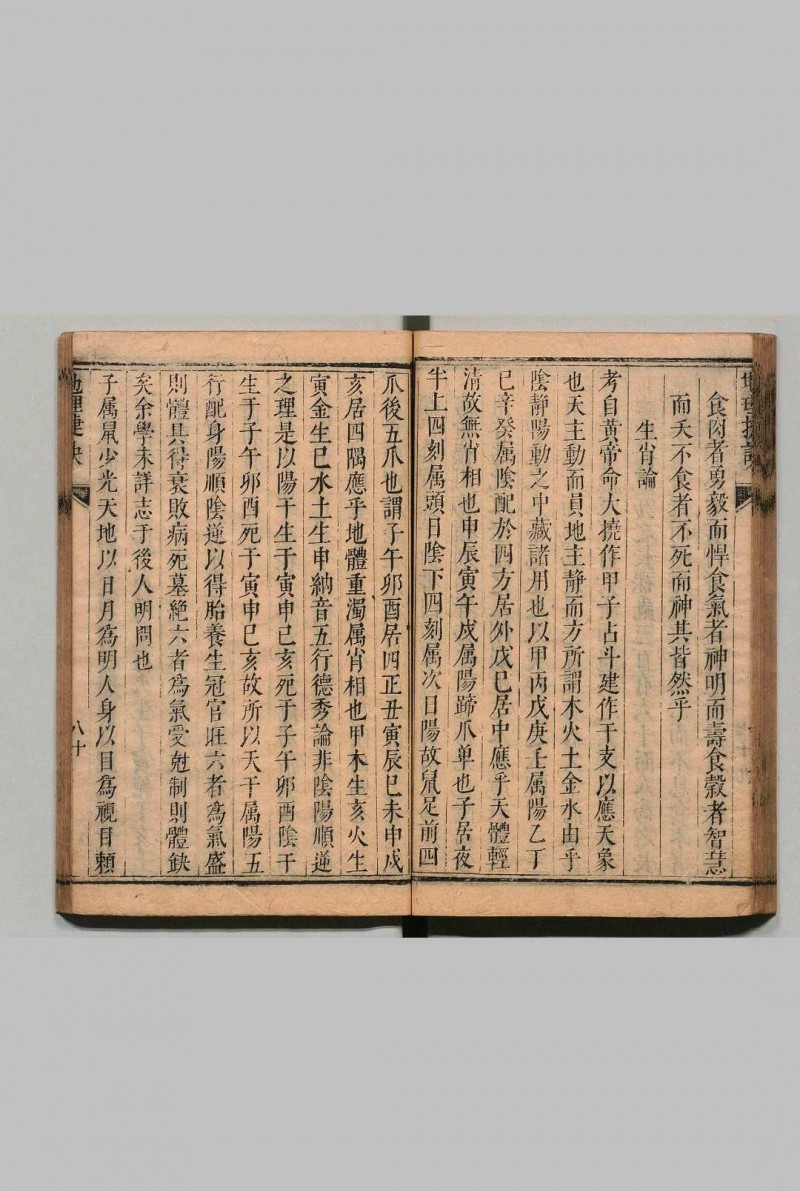 食肉者勇毅而悍食氣者神明而壽食穀者智慧
而夭不食者不死而神其皆然乎
生肖論
考自黃帝命大撓作甲子占斗建作干支以應天象
也天主動而員地主静而方所謂木火土金水由乎
陰静陽動之中藏諸用也以甲丙戊庚壬属陽乙丁
已辛癸属陰配於四方居外戊巳居中應乎天體輕
清故無肖相也申辰寅午戌属陽蹄爪单也子居夜
半上四刻属頭日陰下四刻属次日陽故鼠足前四
爪後五爪也謂子午卯酉居四正丑寅辰巳未申戌
亥居四隅應乎地體重濁属肖相也甲木生亥火生
寅金生巳水土生申納音五行德秀論非陰陽順逆
之理是以陽干生于寅申巳亥死于子午卯酉陰干
生于子午卯酉死于寅申巳亥故所以天干属陽五
行配身陽順陰逆以得胎養生冠官旺六者為氣盛
則體具得衰敗病死墓絕六者為氣受尅制則體缺
矣余學未詳志于後人明問也
子属鼠少光天地以日月為明人身以目為視目賴
地理捷訣
八十